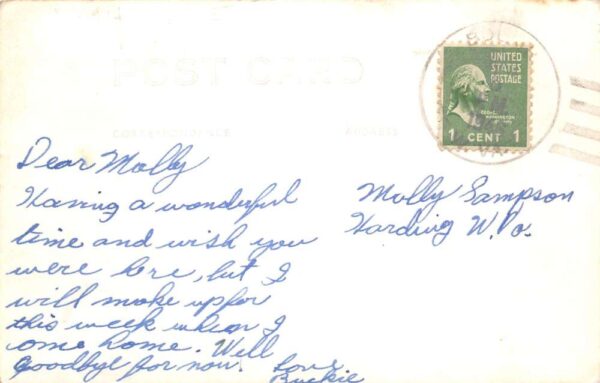 POST CARD
CORRESPONDENCE
ADDRESS
UNITED
STATES
POSTAGE
1 CENT 1
VA
Dear Molly
Having a wonderful
time and wish you
were here, but I
will make up for
this week when I
ome home. Well
Goodbye for now.
Love
Buckie
Molly Sampson
Harding W. Va.